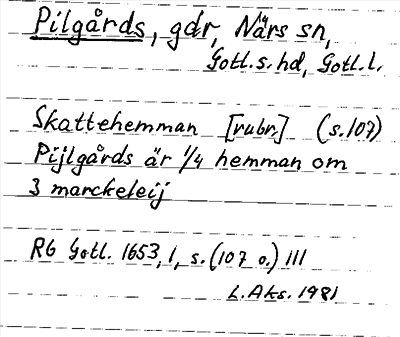 Pilgårds, gdr, Närs sn,
Gotl.s.hd, Gotl.l.
Skattehemman [rubr.] (s.107)
Pijlgårds är 1/4 hemman om
3 marckeleij
RG Gotl. 1653, 1, s. (107 o.) 111
L.Aks. 1981